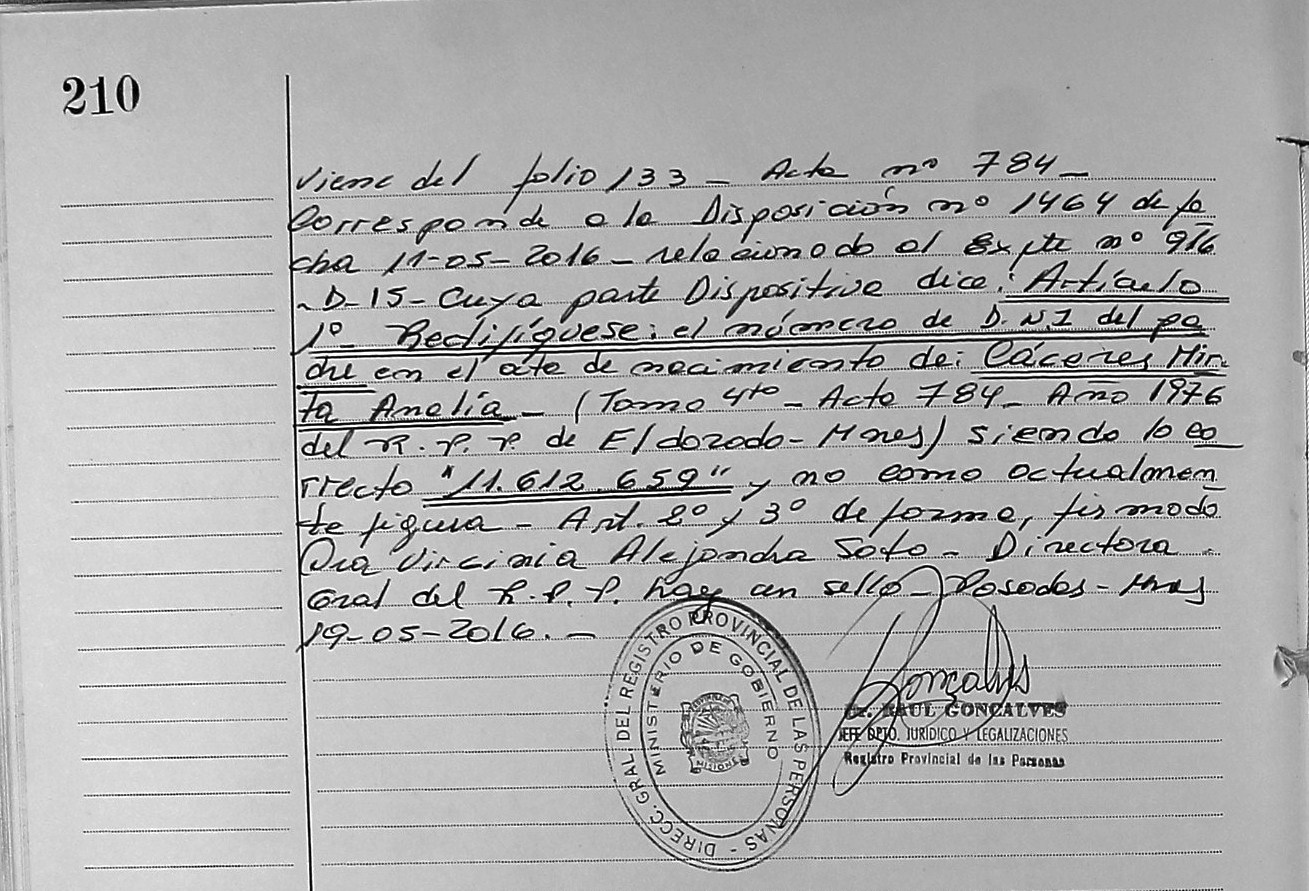 210
Viene del folio 133 - Acta nº 784 -
Corresponde a la Disposición nº 1464 de fe
cha 11-05-2016 - relacionado al Expte nº 916
- D-15 - Cuya parte Dispositiva dice: Artículo
1º - Rectifíquese: el número de D.N.I del pa
dre en el acta de nacimiento de: Cáceres Mir
ta Amelia - (Tomo 4to - Acta 784 - Año 1976
del R.P.P. de Eldorado - Mnes) siendo lo co
rrecto "11.612.659" y no como actualmen
te figura - Art. 2º y 3º de forma, firmado
Dra Virginia Alejandra Soto - Directora
Gral del R.P.P. hay un sello - Posadas - Mnes
19-05-2016. -
DIRECC. GRAL. DEL REGISTRO PROVINCIAL DE LAS PERSONAS -
MINISTERIO DE GOBIERNO
MISIONES
Gonçalves
Cr. RAUL GONCALVES
JEFE DPTO. JURÍDICO Y LEGALIZACIONES
Registro Provincial de las Personas